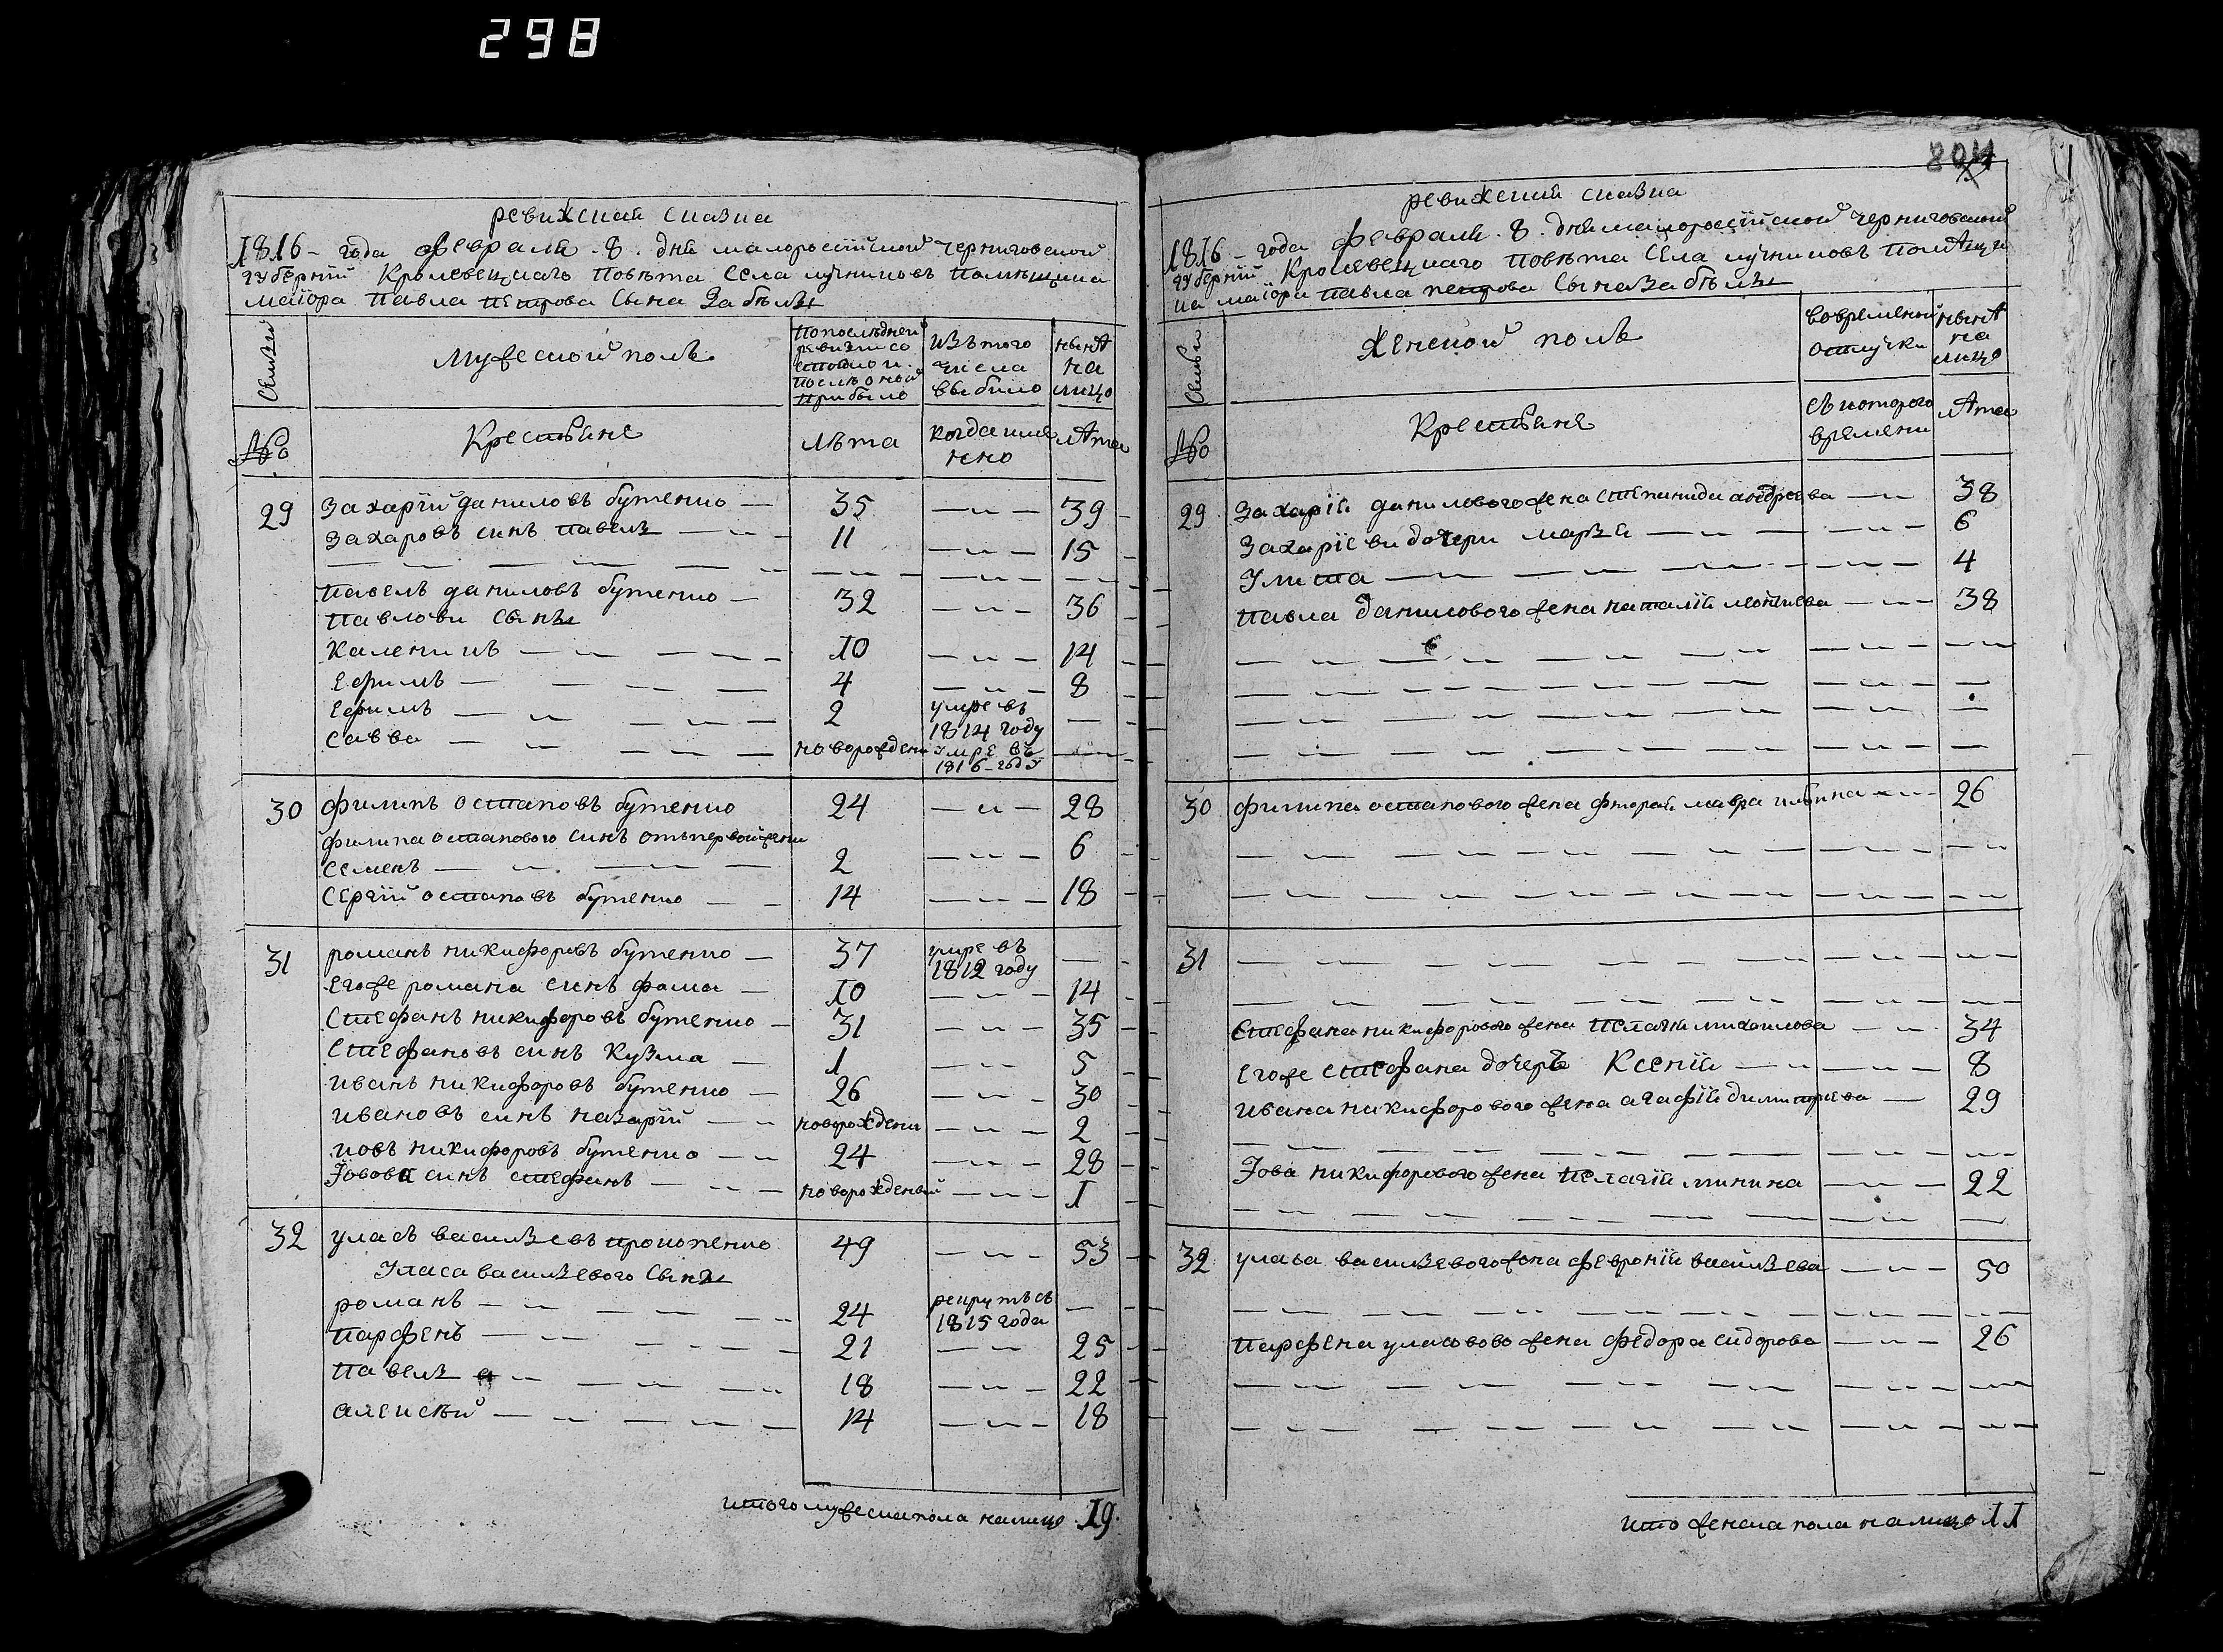 298
804
ревижская сказка
1816 – года февраля . 8 . дня малоросѣйской черниговской
губернїй Кролевецкаго повѣта села лучниковъ помѣщика
маіора павла петрова сына забѣлы
семьи
Мужеской полъ
попослѣдней
ревизіи со
стояло и
послѣ оной
прибыло
изъ того
числа
выбыло
нынѣ
на
лицо
№
Крестьяне
лѣта
когда име
нно
лѣта
29 Захарїй даниловъ бутенко — 35 — „ — 39
Захаровъ синъ павелъ — „ — 11 — „ — 15
павелъ даниловъ бутенко — 32 — „ — 36
павлови сынъы
каленикъ — „ — 10 — „ — 14
ефимъ — 4 — „ — 8
ефимъ — „ — 2 умре въ
1814 году —
савва — „ — новорожденъ умре въ
1816 – году —
30 филипъ остаповъ бутенко 24 — „ — 28
филипа остапового синъ отъ первой жени
семенъ — „ — 2 — „ — 6
сергїй остаповъ бутенко — 14 — „ — 18
31 романъ никифоровъ бутенко — 37 умре въ
1812 году —
егоже романа синъ фома — 10 — „ — 14
стефанъ никифоровъ бутенко — 31 — „ — 35
стефановъ синъ Кузма — 1 — „ — 5
иванъ никифоровъ бутенко — 26 — „ — 30
ивановъ синъ назарїй — „ новорождени — „ — 2
иовъ никифоровъ бутенко — „ 24 — „ — 28
Іовова синъ стефанъ — „ — новорожденый — „ — 1
32 уласъ василъевъ прокопенко 49 — „ — 53
Уласа василъевого сынъы
романъ — „ — 24 рекрутъ съ
1815 года —
парфенъ — „ — 21 — „ — 25
павелъ — „ — 18 — „ — 22
алексѣй — „ — 14 — „ — 18
итого мужеска пола налицо . 19 .
ревижская сказка
1816 – года февраля . 8 . дня малоросѣйской черниговской
губернїй Кролевецкаго повѣта села лучниковъ помѣщи
ка маіора павла петрова сына забѣлы
семьи
женской полъ
во временной
отлучки
нынѣ
на
лицо
№
Крестьяне
съ которого
времени
лѣта
29 Захарїя данилового жена степанида андреева — „ 38
Захарїеви дочери марья — „ — 6
Улита — „ — 4
павла данилового жена наталїя леонтьева — „ — 38
30 филипа остапового жена фторая мавра ильина — „ — 26
31
стефана никифорового жена пелагия михаилова — „ 34
егоже стефана дочеръ Ксенїя — „ — 8
ивана никифорового жена агафїя димитрева — 29
Іова никифорового жена пелагїя минина — „ — 22
32 уласа василъевого жена февронїя василъева — „ — 50
парфена уласового жена федора сидорова — „ — 26
ито женска пола налицо 11